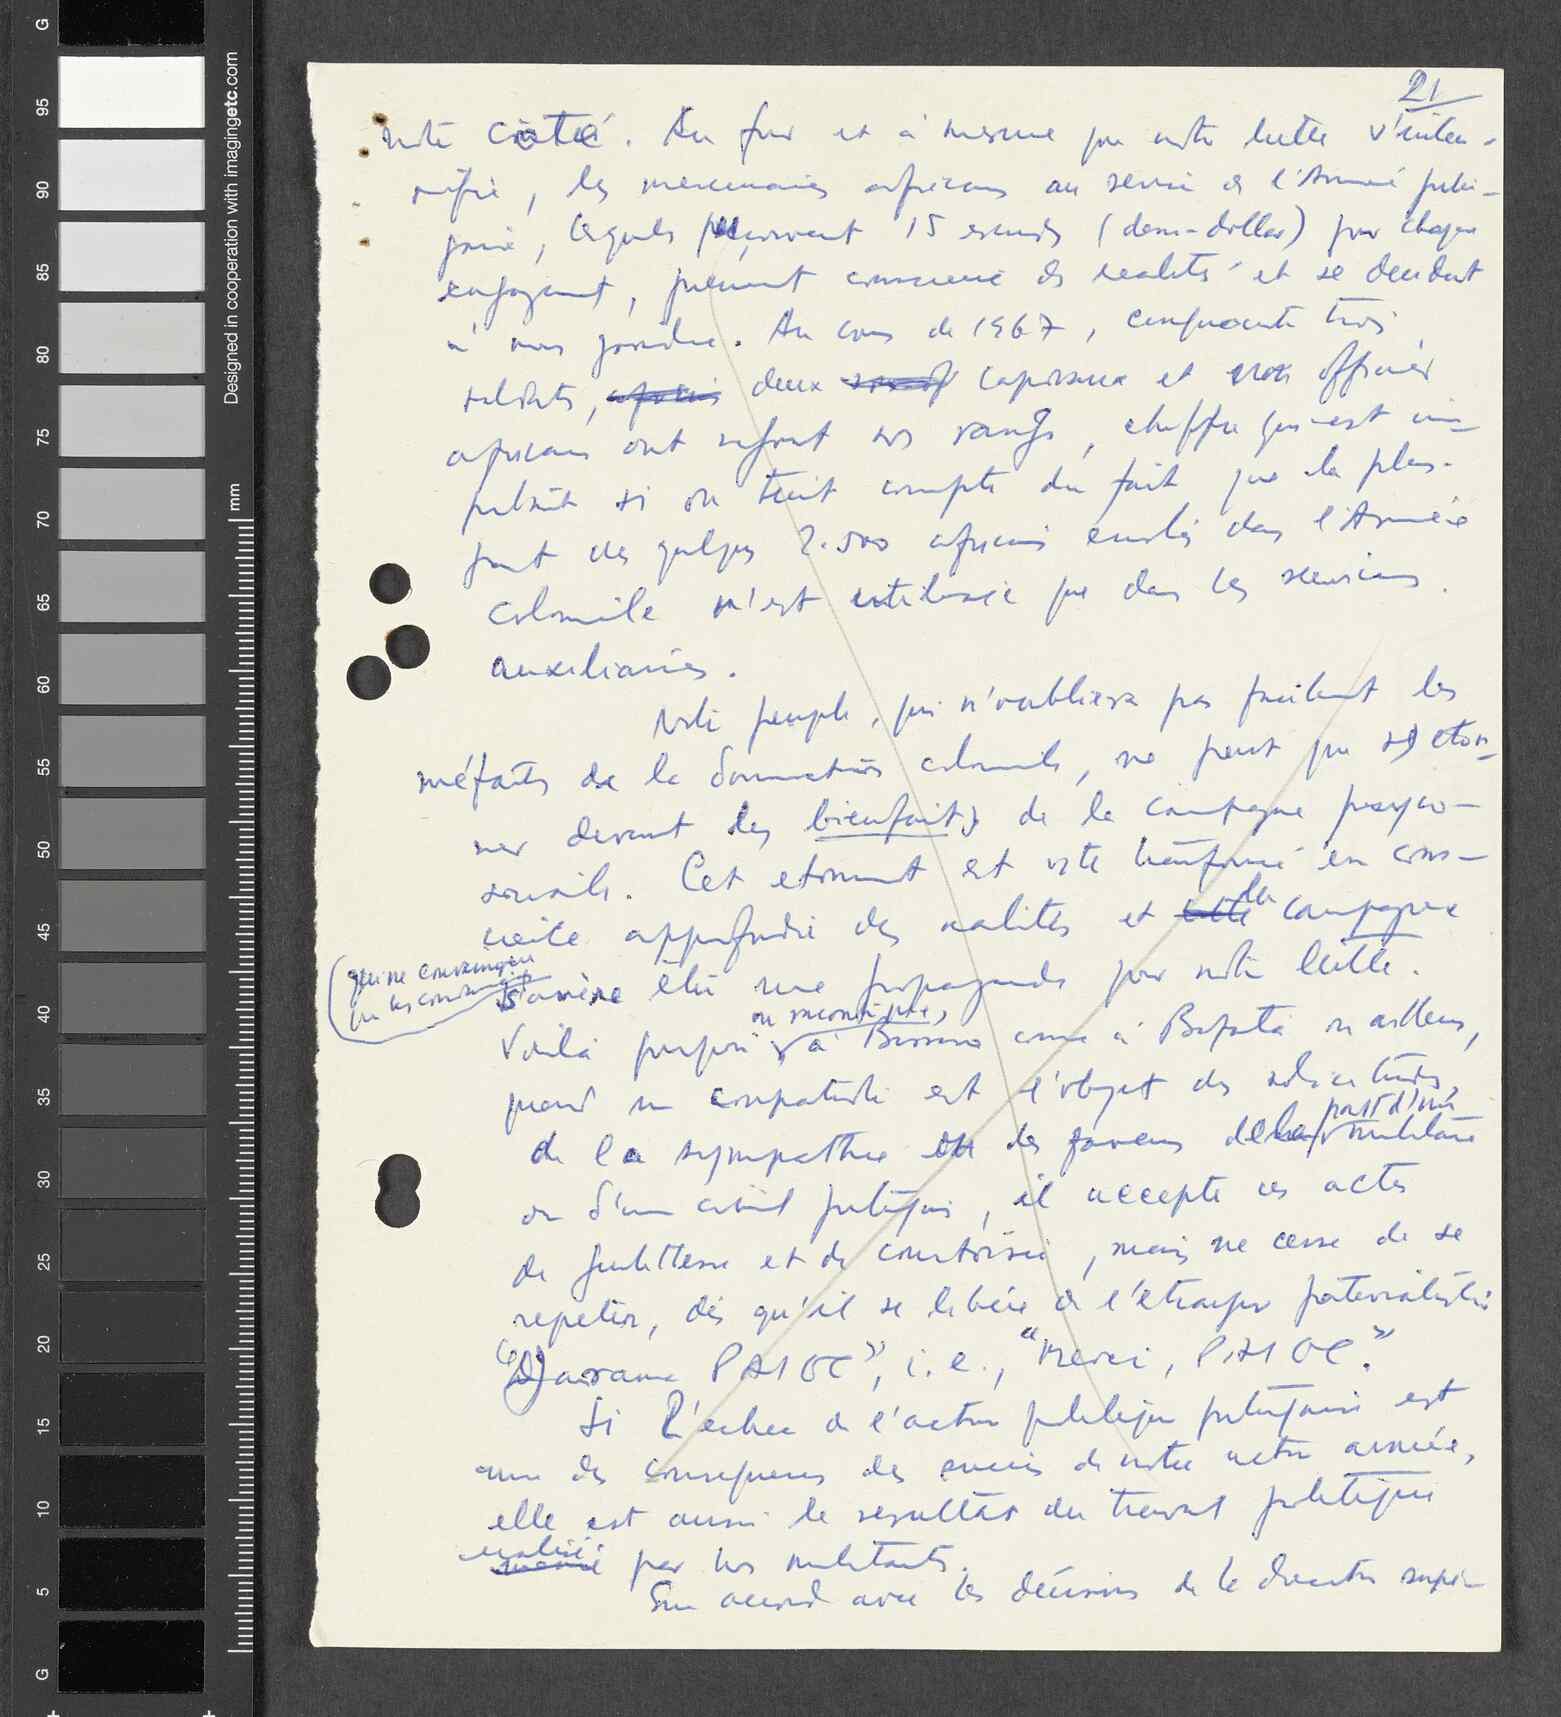 21
notre côté. Au fur et à mesure que notre lutte s'inten-
sifie, les mercenaires africains au service de l'Armée portu-
gaise, lesquels perçoivent 15 escudos (demi-dollar) par chaque
engagement, prennent conscience des realités et se decident
à nous joindre. Au cours de 1967, cinquante trois
soldats, deux caporaux et un officier
africains ont rejoint nos rangs, chiffre qui est im-
portant si on tient compte du fait que la plu-
part des quelques 2.500 africains enrolés dans l'Armée
coloniale n'est utilisée que dans les services
auxiliaires.
Notre peuple, qui n'oubliera pas facilement les
méfaits de la domination coloniale, ne peut que s'eton-
ner devant les bienfaits de la campagne psycho-
sociale. Cet etonnement est vite transformé en cons-
cience approfondie des realités et la campagne
(qui ne convainquent que les convaincus)
s'avère être une propagande pour notre lutte.
ou incorrigibles,
Voilà pourquoi à Bissau comme à Bafatá ou ailleurs,
quand un compatriote est l'objet des sollicitudes,
de la sympathie ou des faveurs de la part d'un militaire
ou d'un civil portugais, il accepte ces actes
de gentillesse et de courtoisie, mais ne cesse de se
repeter, dès qu'il se libère de l'étreinte paternaliste
"Djarama PAIGC", i.e., "Merci, PAIGC."
Si l'echec de l'action politique portugaise est
une des consequences des succès de notre action armée,
elle est aussi le resultat du travail politique
realisé par nos militants.
En accord avec les décisions de la direction supé-
Designed in cooperation with imagingetc.com
mm
G
95
90
85
80
75
70
65
60
55
50
45
40
35
30
25
20
15
10
5
G